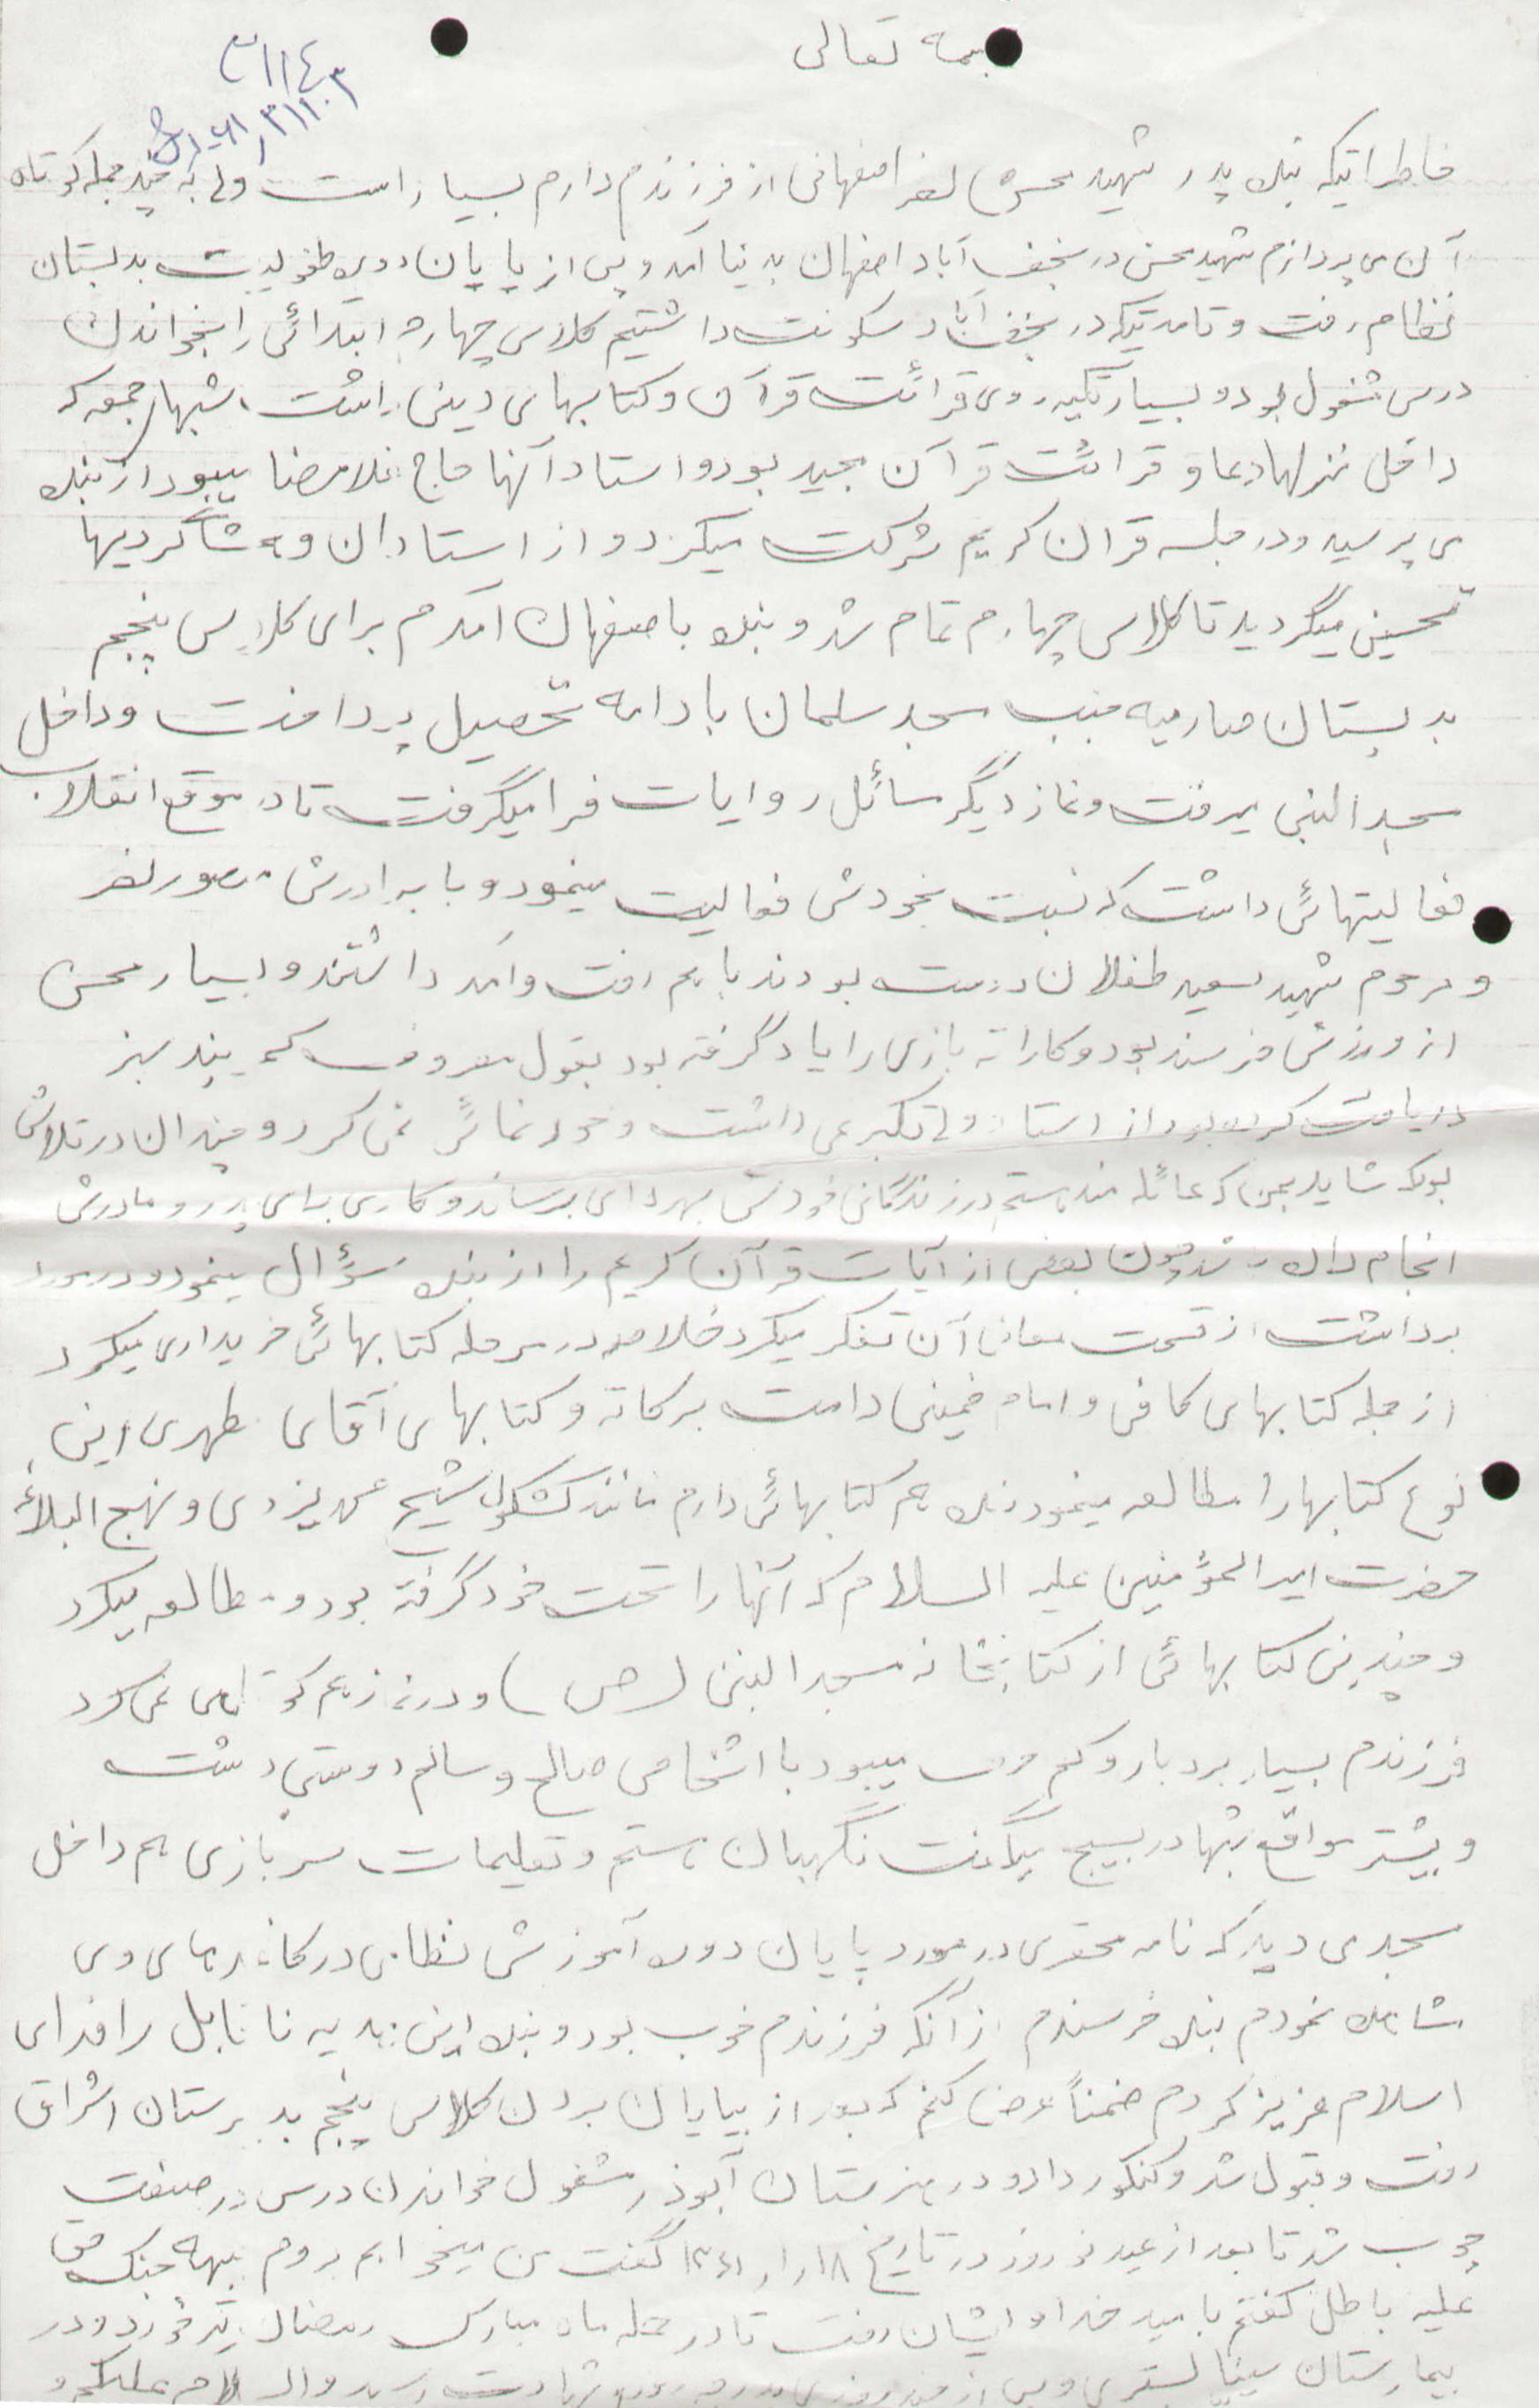 بسمه تعالی
۳۱۱۴۳
خاطراتیکه بنده پدر شهید محسن نصر اصفهانی از فرزندم دارم بسیار است ولی به چند جمله کوتاه
آن می پردازم شهید محسن در نجف آباد اصفهان بدنیا آمد و پس از پایان دوره طفولیت بدبستان
نظام رفت و تا مدتیکه در نجف آباد سکونت داشتیم کلاس چهارم ابتدائی را بخواندن
درس مشغول بود و بسیار تکیه روی قرائت قرآن و کتابهای دینی داشت، شبهای جمعه که
داخل منزلها دعا و قرائت قرآن مجید بود و استاد آنها حاج غلامرضا میبود از بنده
می پرسید و در جلسه قران کریم شرکت میکرد و از استادان و هم شاگردیها
تحسین میگردید تا کلاس چهارم تمام شد و بنده باصفهان آمدم برای کلاس پنجم
بدبستان صارمیه جنب مسجد سلمان بادامه تحصیل پرداخت و داخل
مسجد النبی میرفت و نماز و دیگر مسائل روایات فرا میگرفت تا در موقع انقلاب
فعالیتهائی داشت که نسبت بخودش فعالیت مینمود و با برادرش منصور نصر
و مرحوم شهید سعید طفلان دوست بودند با هم رفت و آمد داشتند و بسیار محسن
از ورزش خرسند بود و کاراته بازی را یاد گرفته بود بقول معروف کمربند سبز
دریافت کرده بود از استاد ولی تکبر نمی داشت و خود نمائی نمی کرد و چندان در تلاش
بود که شاید بمن که عائله مند هستم در زندگانی خودش بهره ای برساند و کاری برای پدر و مادرش
انجام داده باشد چون بعضی از آیات قرآن کریم را از بنده سؤال مینمود و در مورد
برداشت از قسمت معانی آن تفکر میکرد خلاصه در هر مرحله کتابهائی خریداری میکرد
از جمله کتابهای کافی و امام خمینی دامت برکاته و کتابهای آقای مطهری این
نوع کتابها را مطالعه مینمود بنده هم کتابهائی دارم مانند کشکول شیخ محمد یزدی و نهج البلاغه
حضرت امیر المؤمنین علیه السلام که آنها را تحت خود گرفته بود و مطالعه میکرد
و چندین کتابهائی از کتابخانه مسجد النبی (ص) و در نماز هم کوتاهی نمی کرد
فرزندم بسیار بردبار و کم حرف میبود با اشخاص صالح و سالم دوستی داشت
و بیشتر مواقع شبها در بسیج میگفت نگهبان هستم و تعلیمات سربازی هم داخل
مسجد می دید که نامه مختصری در مورد پایان دوره آموزش نظامی در کاغذهای وی
مشاهده نمودم بنده خرسندم از آنکه فرزندم خوب بود و بنده این هدیه ناقابل را فدای
اسلام عزیز کردم ضمناً عرض کنم که بعد از بپایان بردن کلاس پنجم بدبیرستان اشراق
رفت و قبول شد و کنکور داد و در هنرستان ابوذر مشغول خواندن درس در صنعت
چوب شد تا بعد از عید نوروز در تاریخ ۱۸ر۱ر۱۳۶۱ گفت من میخواهم بروم بجبهه جنگ حق
علیه باطل گفتم بامید خدا و ایشان رفت تا در حمله ماه مبارک رمضان تیر خورد و در
بیمارستان سینا بستری و پس از چند روزی بدرجه شهادت رسید والسلام علیکم و